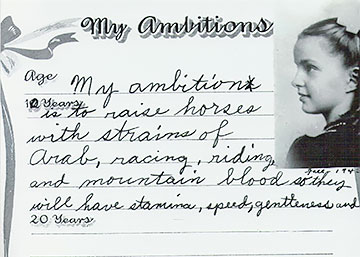 My Ambitions
Age
My ambition
10 Years
is to raise horses
with strains of
Arab, racing, riding,
and mountain blood so they
will have stamina, speed, gentleness and
20 Years